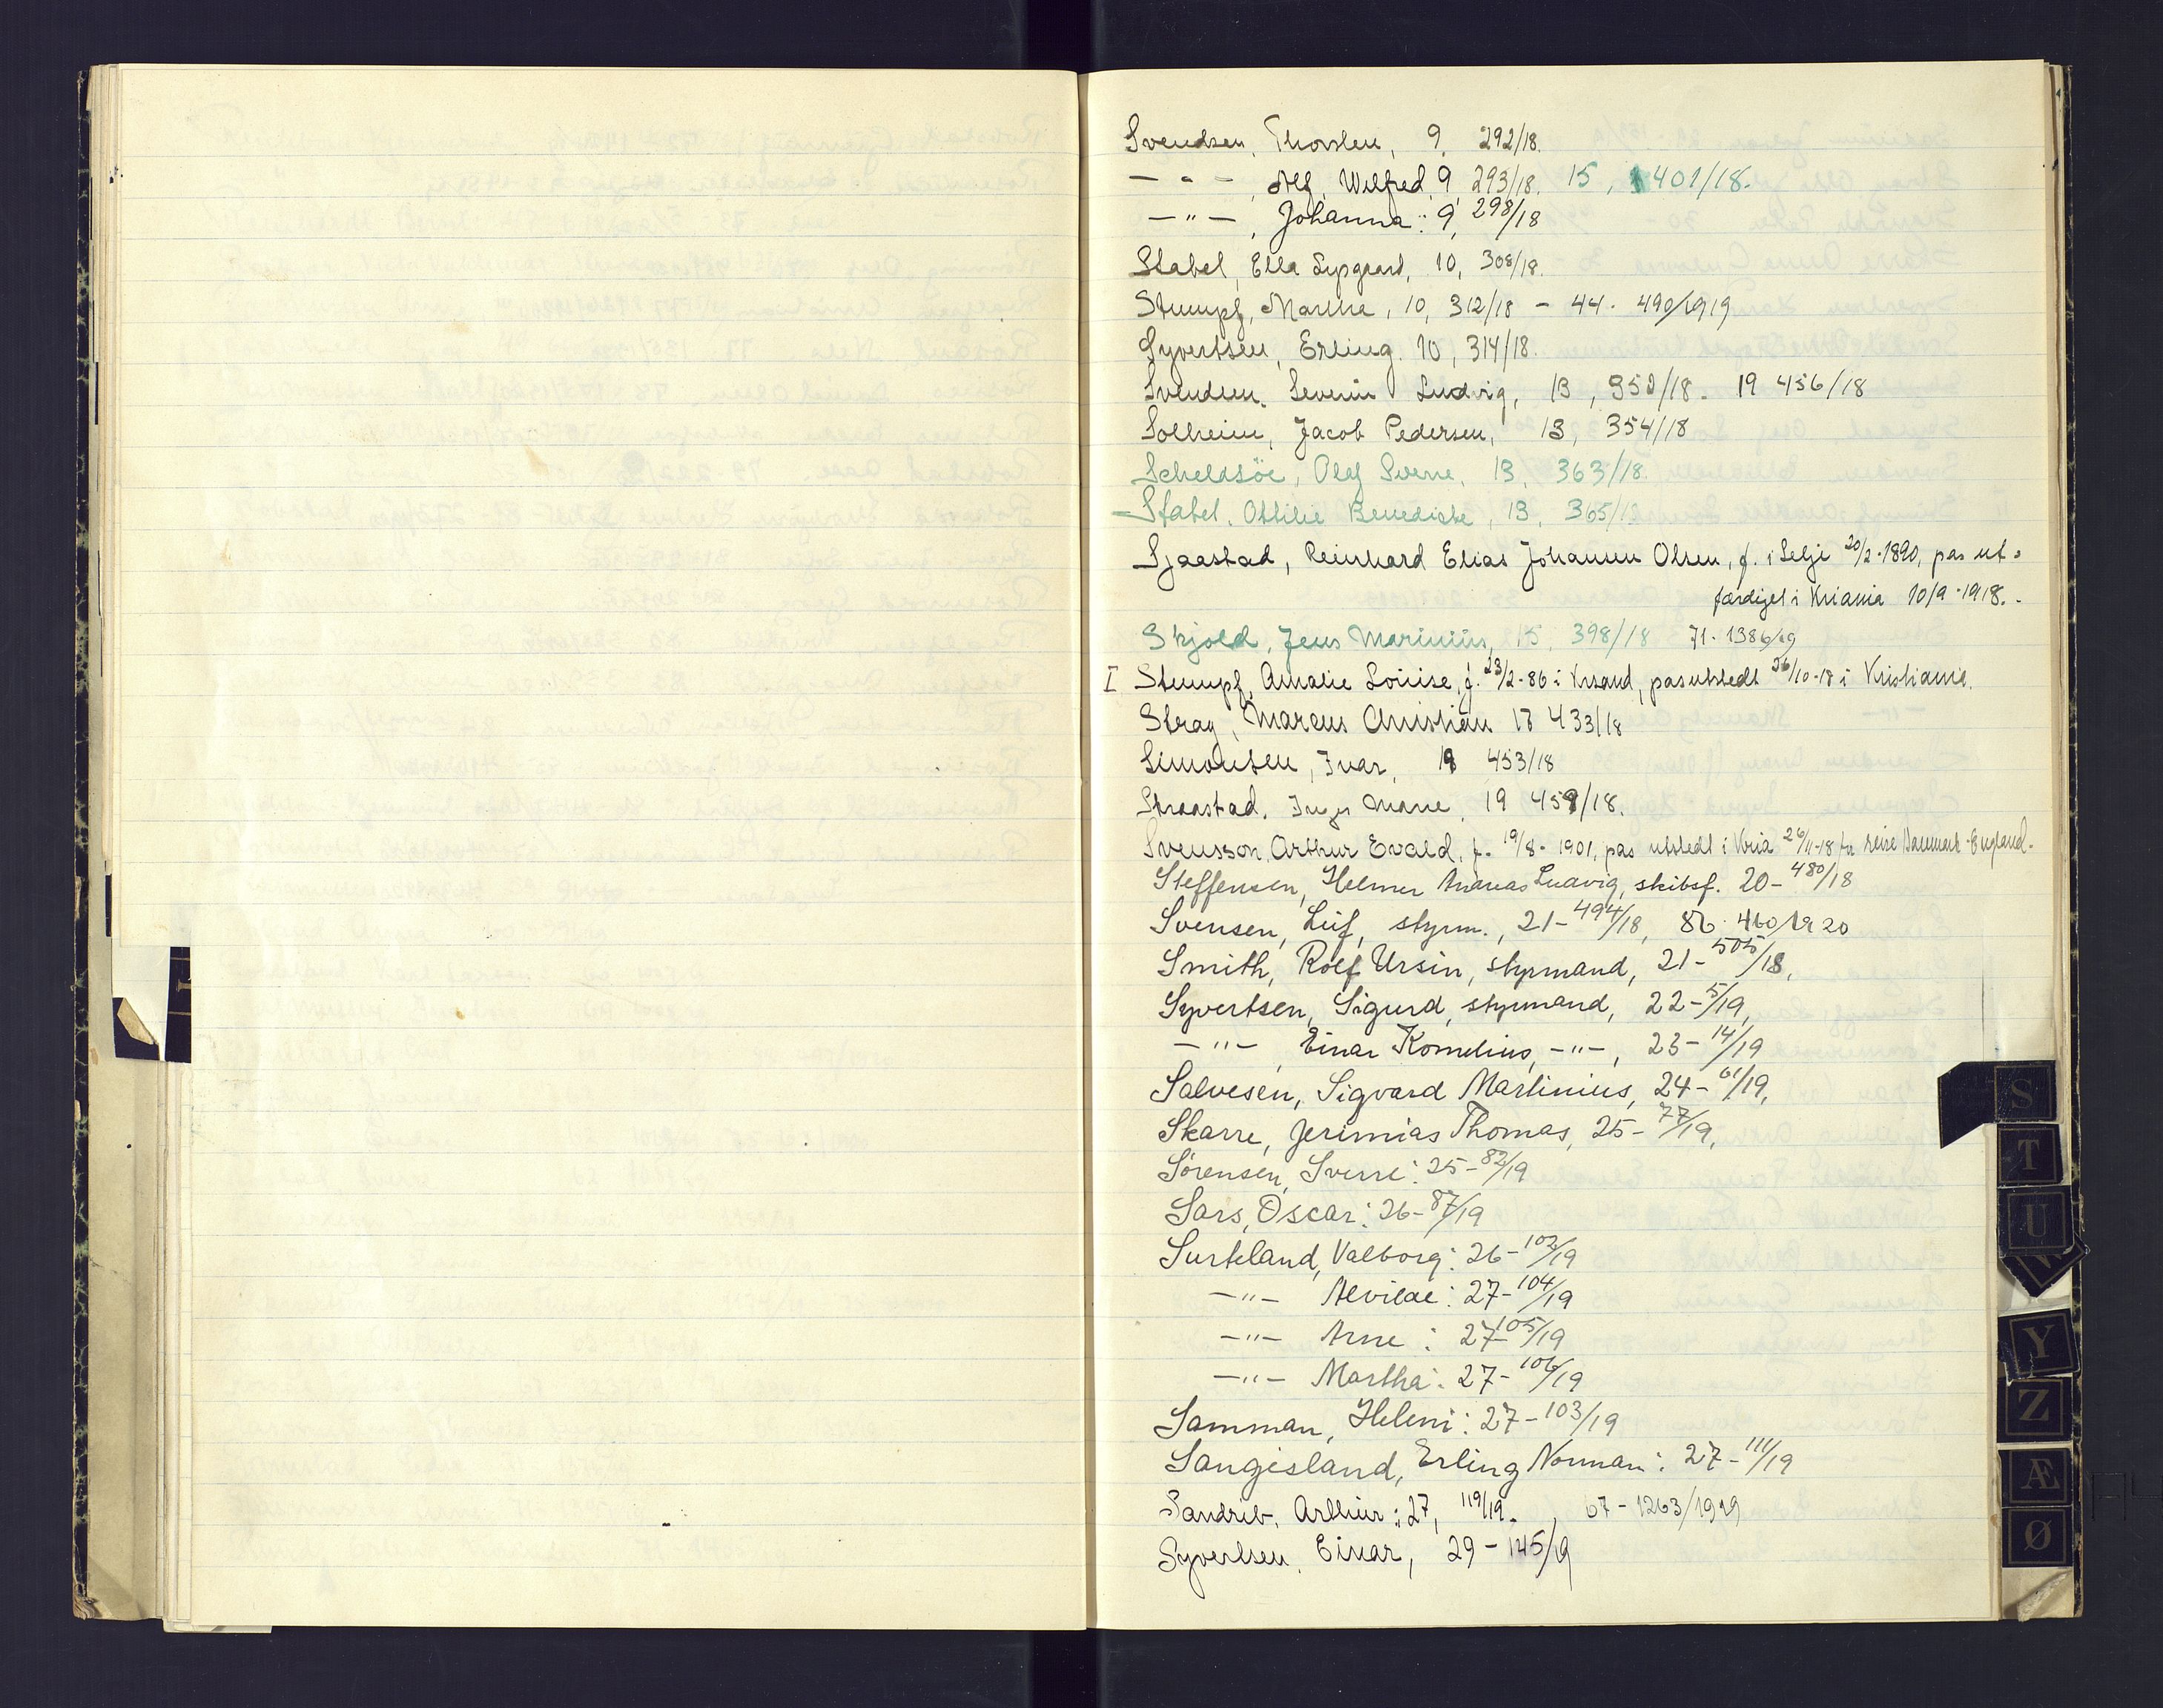 Svendsen, Thorsten, 9. 292/18.
— " — , Alf, Wilfred, 9, 293/18. 15, 401/18.
— " — , Johanna: 9, 298/18
Stabel, Ella Sypgaard, 10, 308/18.
Stumpf, Martha, 10, 312/18 — 44. 490/1919
Syvertsen, Erling. 10, 314/18.
Svendsen. Severin Ludvig, 13, 352/18. 19 456/18
Solheim, Jacob Pedersen, 13, 354/18
Scheldsöe, Olef Sverre, 13, 363/18.
Stabel. Ottilie Benedicte, 13, 365/18
Sjaastad, Reinhard Elias Johansen Olsen, f. i Selje 20/2-1890, pas ut-
færdiget i Kriania 10/9-1918.
Skjold, Jens Marinius, 15, 398/18 71. 1386/19
I Stumpf, Amalie Louise, f. 23/2-86 i Krsand, pas utstedt 26/10-18 i Kristiania.
Stray, Marcus Christian 18 433/18
Simonsen, Ivar, 19 453/18
Straastad. Inger Marie, 19 459/18.
Svensson, Arthur Evald, f. 19/8-1901, pas utstedt i Kria 26/11-18 for reise Danmark-England.
Steffensen, Helmer Andreas Ludvig, skibsf. 20-480/18
Svensen, Leif, styrm., 21-494/18, 86. 460/1920
Smith, Rolf Ursin, styrmand, 21-505/18,
Syvertsen, Sigurd, styrmand, 22-5/19,
— " — , Einar Kornelius, — " — , 23-14/19
Salvesen, Sigvard Martinius, 24-61/19,
Skarre, Jerimias Thomas, 25-77/19,
Sörensen, Sverre: 25-82/19
Sars, Oscar: 26-87/19
Surteland, Valborg: 26-102/19
— " — Alvilde: 27-104/19
— " — Arne: 27-105/19
— " — Martha: 27-106/19
Samman, Heleni: 27-103/19
Sangesland, Erling Norman: 27-111/19
Sandrib, Arthur: 27, 119/19. , 67-1263/1919
Syvertsen, Einar, 29-145/19
S
T
U
V
Y
Z
Æ
Ø